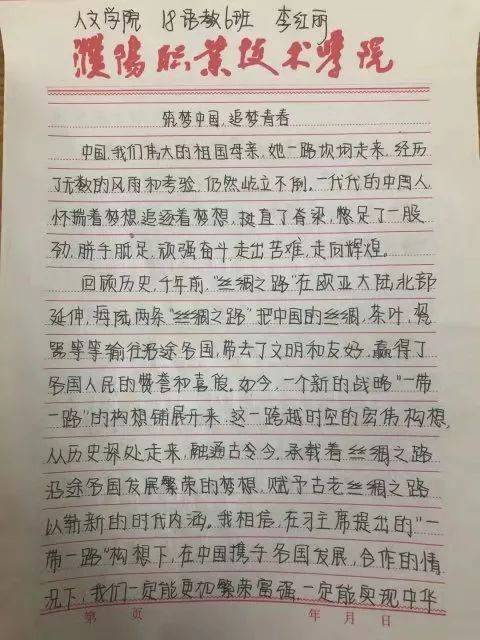 人文学院 18语教6班 李红丽
濮陽职业技术学院
筑梦中国,追梦青春
中国,我们伟大的祖国母亲,她一路坎坷走来,经历
了无数的风雨和考验,仍然屹立不倒。一代代的中国人
怀揣着梦想,追逐着梦想,挺直了脊梁,憋足了一股
劲,胼手胝足,顽强奋斗,走出苦难,走向辉煌。
回顾历史,千年前,“丝绸之路”在欧亚大陆北部
延伸,海陆两条“丝绸之路”把中国的丝绸,茶叶,瓷
器等等输往沿途各国,带去了文明和友好,赢得了
各国人民的赞誉和喜爱。如今,一个新的战略“一带
一路”的构想铺展开来,这一跨越时空的宏伟构想,
从历史深处走来,融通古今,承载着丝绸之路
沿途各国发展繁荣的梦想,赋予古老丝绸之路
以崭新的时代内涵。我相信,在习主席提出的“一
带一路”构想下,在中国携手各国发展,合作的情
况下,我们一定能更加繁荣富强,一定能实现中华
第 页 年 月 日